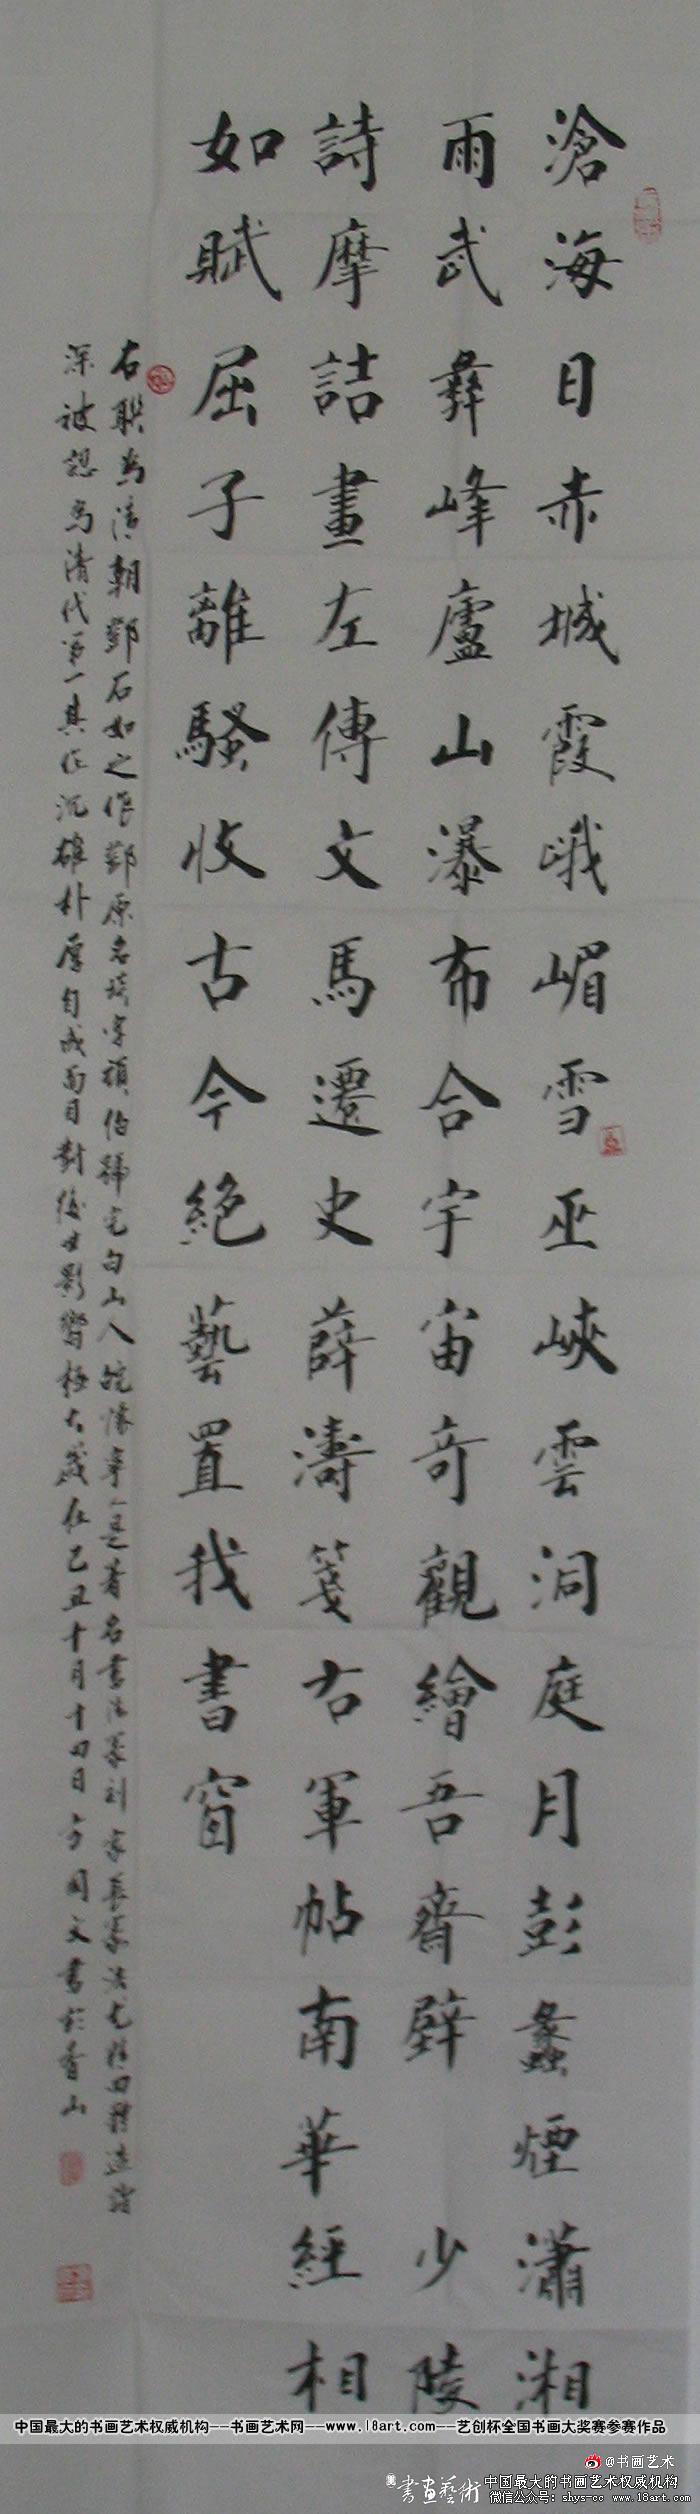 滄海日赤城霞峨嵋雪巫峽雲洞庭月彭蠡煙瀟湘
雨武彝峰廬山瀑布合宇宙奇觀繪吾齋壁 少陵
詩摩詰畫左傳文馬遷史薛濤箋右軍帖南華經相
如賦屈子離騷收古今絕藝置我書窗
右聯為清朝鄧石如之作鄧原名琰字頑伯號完白山人皖懷寧人是著名書法篆刻家長篆法尤精四體造詣
深被認為清代第一其作沉雄朴厚自成面目對後世影響極大歲在己丑十月十四日方國文書於香山
中国最大的书画艺术权威机构--书画艺术网--www.18art.com--艺创杯全国书画大奖赛参赛作品
@书画艺术
書畫藝術 中国最大的书画艺术权威机构
微信公众号：shys-cc www.18art.com